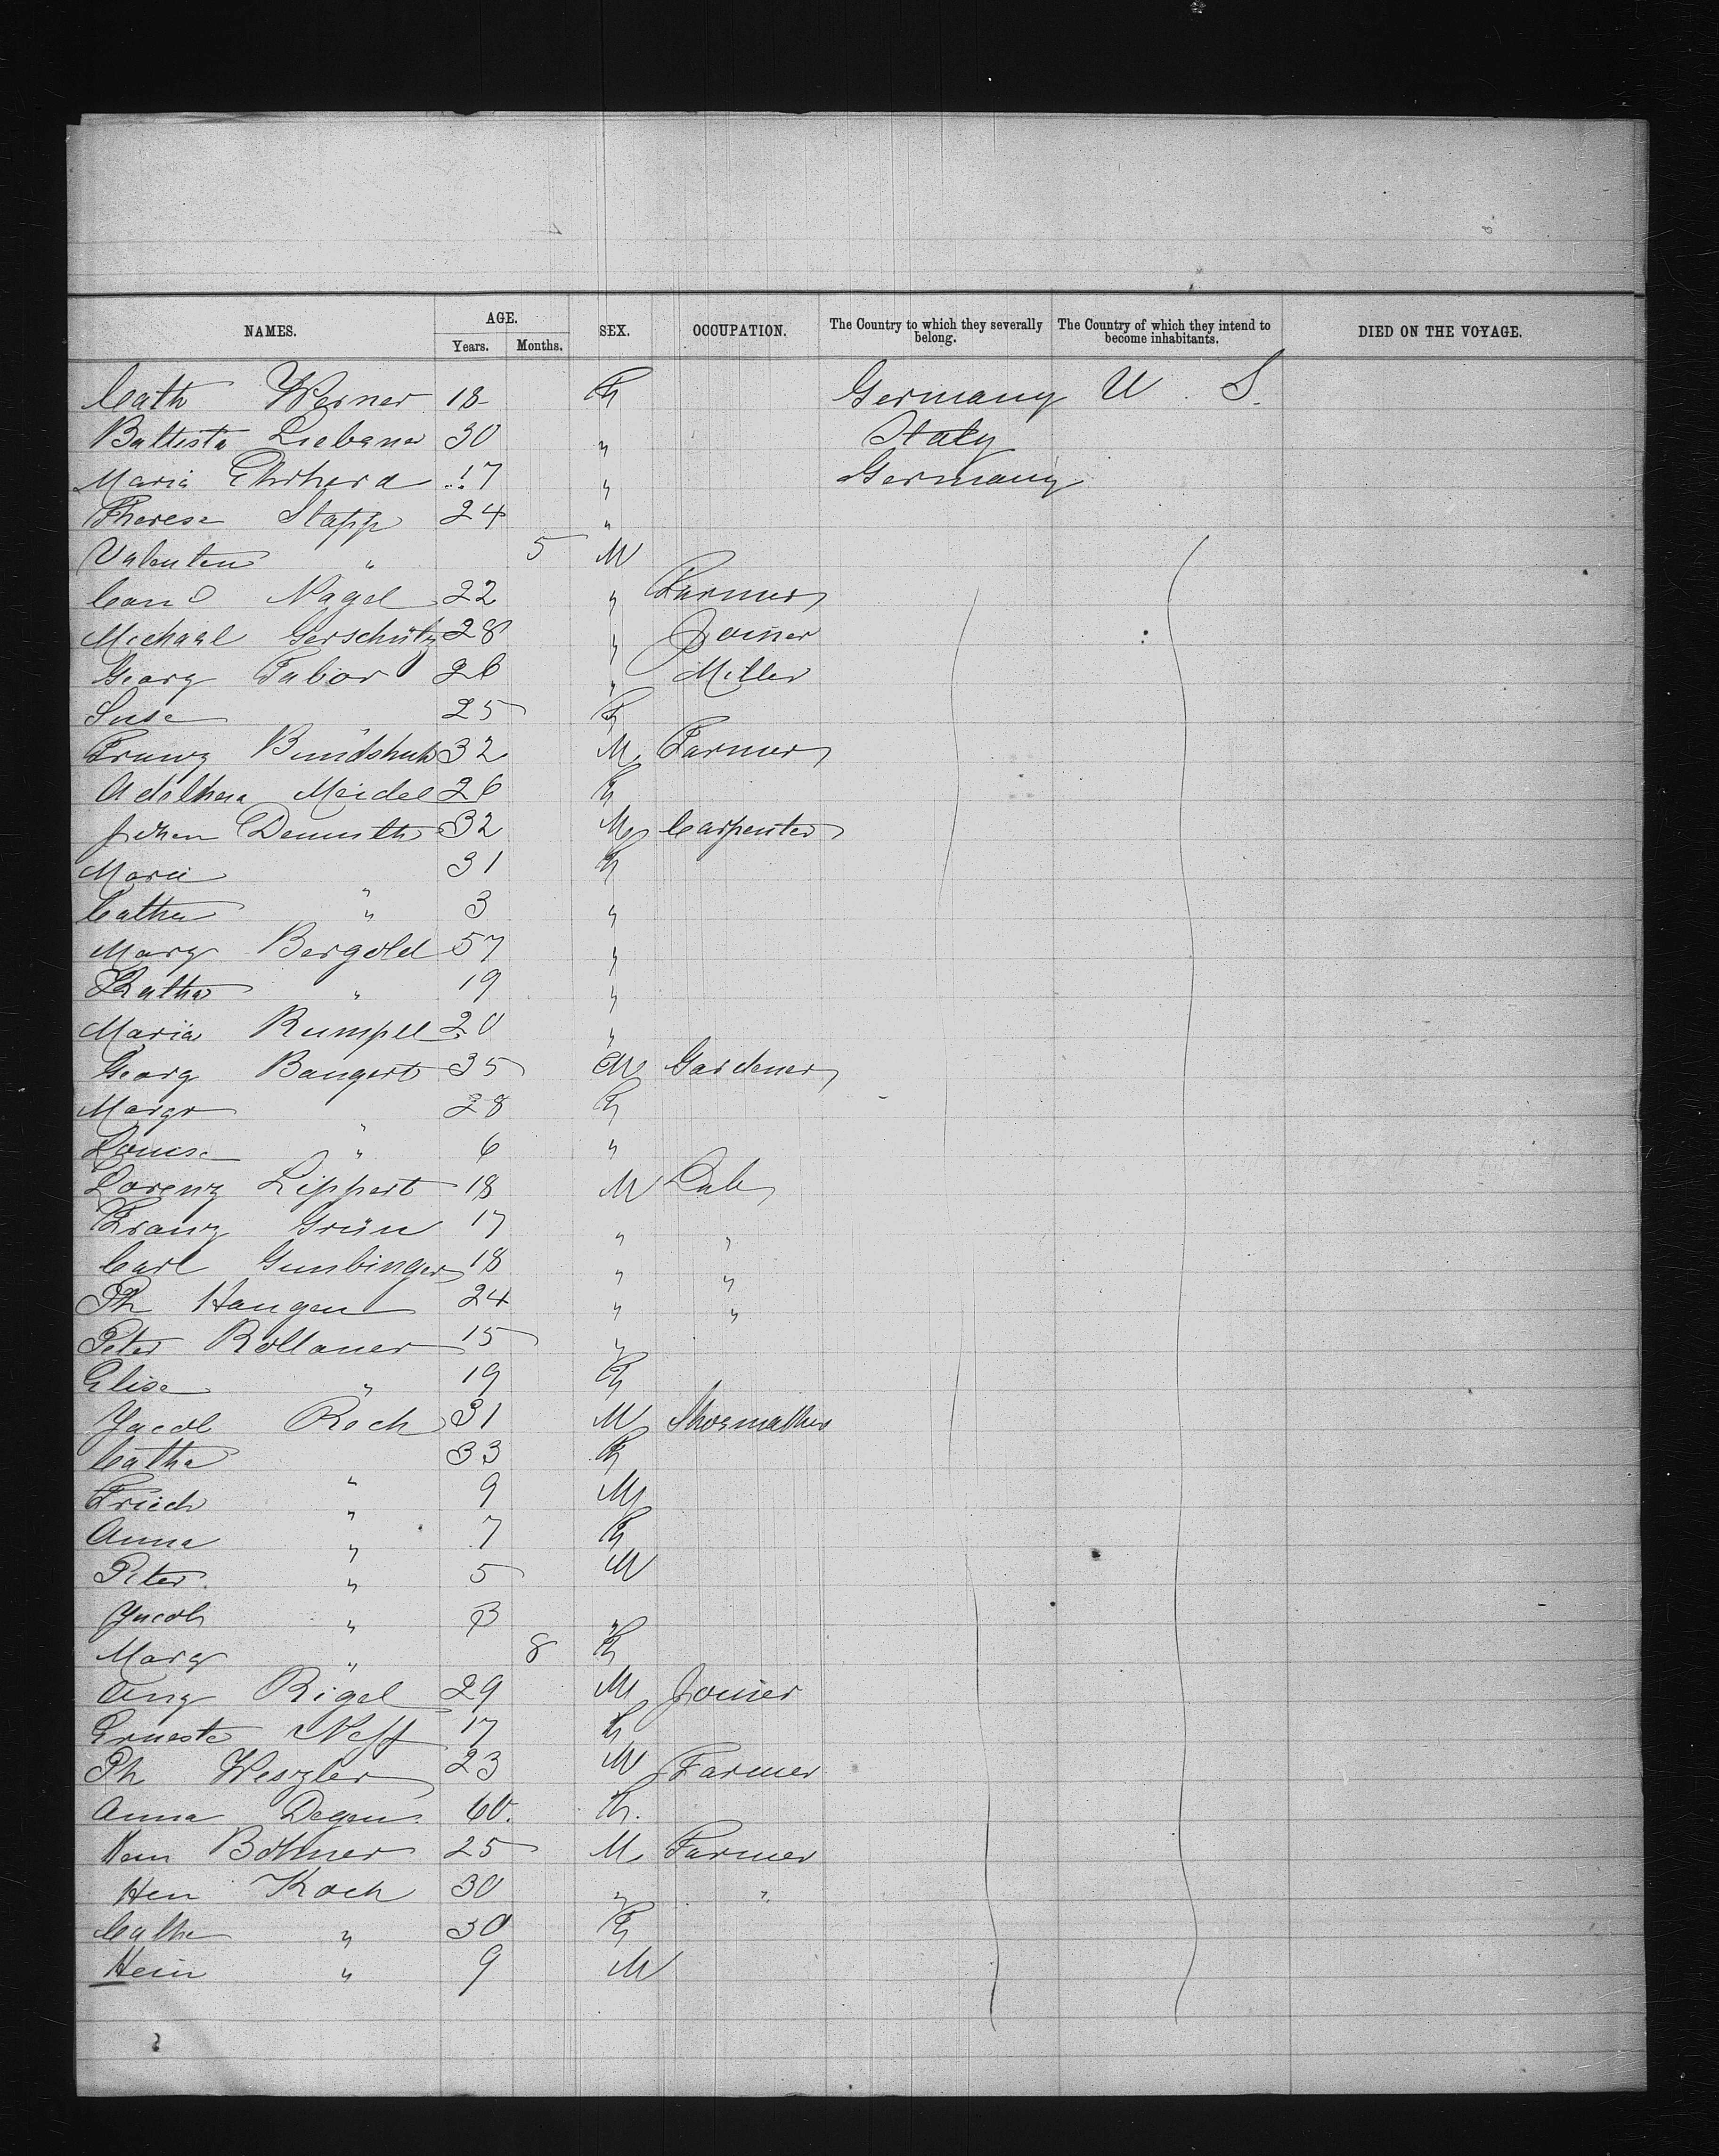 NAMES. AGE. SEX. OCCUPATION. The Country to which they severally belong. The Country of which they intend to become inhabitants. DIED ON THE VOYAGE.
Years. Months.
Cath Werner 18 F Germany U. S.
Battista Liebana 30 " Italy
Maria Ehrhard 17 " Germany
Therese Stapp 24 "
Valentin " 5 M
Nagel 22 " Farmer
Michael Gerschütz 28 " Joiner
Georg Tabor 26 " Miller
Suse 25 F
Franz Bundshuh 32 M Farmer
Meidel 26 F
Johan Demuth 32 M Carpenter
Marie " 31 F
Catha " 3 "
Marg Bergold 57 "
Katha " 19 "
Maria Rumpel 20 "
Georg Bangert 35 M Gardener
Margr " 28 F
Louise " 6 "
Lorenz Lippert 18 M Lab
Franz Grün 17 " "
Carl Gumbinger 18 " "
Ph Haugen 24 " "
Peter Rollauer 15 "
Elise " 19 F
Jacob Rech 31 M Shoemaker
Catha " 33 F
Friedr " 9 M
Anna " 7 F
Peter " 5 M
Jacob " 3 "
Marg " 8 F
Aug Rigel 29 M Joiner
Erneste Neff 17 F
Ph Weszler 23 M Farmer
Anna Degen 60. F.
Bohner 25 M Farmer
Hen Koch 30 " "
Cathe " 30 F
Hein " 9 M